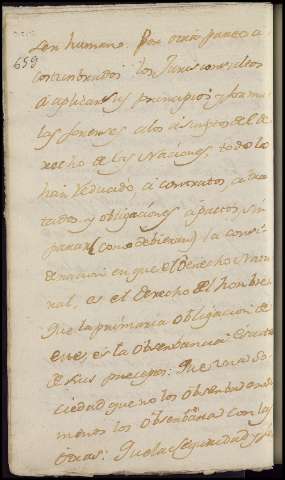 659
len humano. Por otra parte a
costumbrados los Jurisconsultos
a aplicar sus principios y formu
las forenses a los asumptos del de
recho de las Naciones, todo lo
han reducido, a contratos, a tra
tados y obligaciones a pactos, sin
parar (como debieran) la consi
deracion en que el Derecho Natu
ral, es el derecho del hombre:
Que la primaria obligacion de
este, es la observancia exacta
de sus preceptos: Que una So
ciedad que no los observa
menos los observará con las
otras: Que la seguridad y